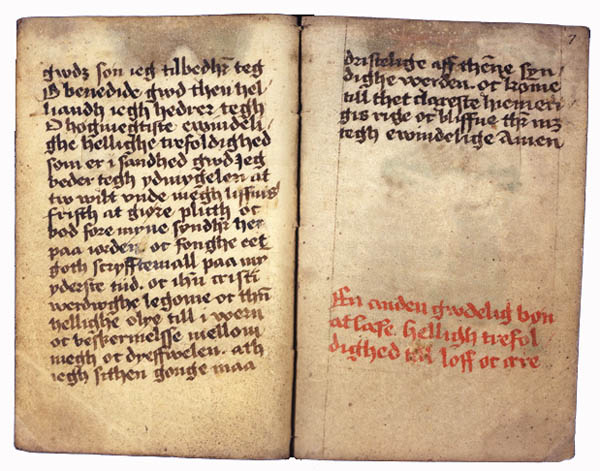 gwdz son ieg tilbedhr teg
O benedide gwd then hel
liandh iegh hedrer tegh
O hogmegtiste ewindeli
ghe hellighe trefoldighed
som er i sandhed gwd Jeg
beder tegh ydmygelen at
tw wilt vnde megh liffuens
fristh at giøre plicth oc
bod fore myne syndhr her
paa iorden. oc fonghe eet
goth scryfftemall paa my
yderste tiid. oc ihu cristi
werdwghe legome oc thn
hellighe olye till i wern
oc beskermelsse mellom
megh oc dyeffwelen. ath
iegh sithen gonge maa
7
dristelige aff thene syn
dighe werden. oc kome
till thet clareste hiemeri
gis rige oc bliffue thr mz
tegh ewindelige Amen
En anden gwdelig bøn
at læse. helligh trefol
dighed till loff oc ære